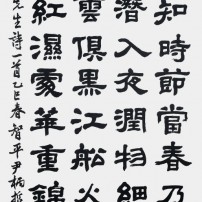 知時節當春乃
潛入夜潤物細
雲俱黑江船火
紅濕處華重錦
先生詩一首乙巳春智平尹柄